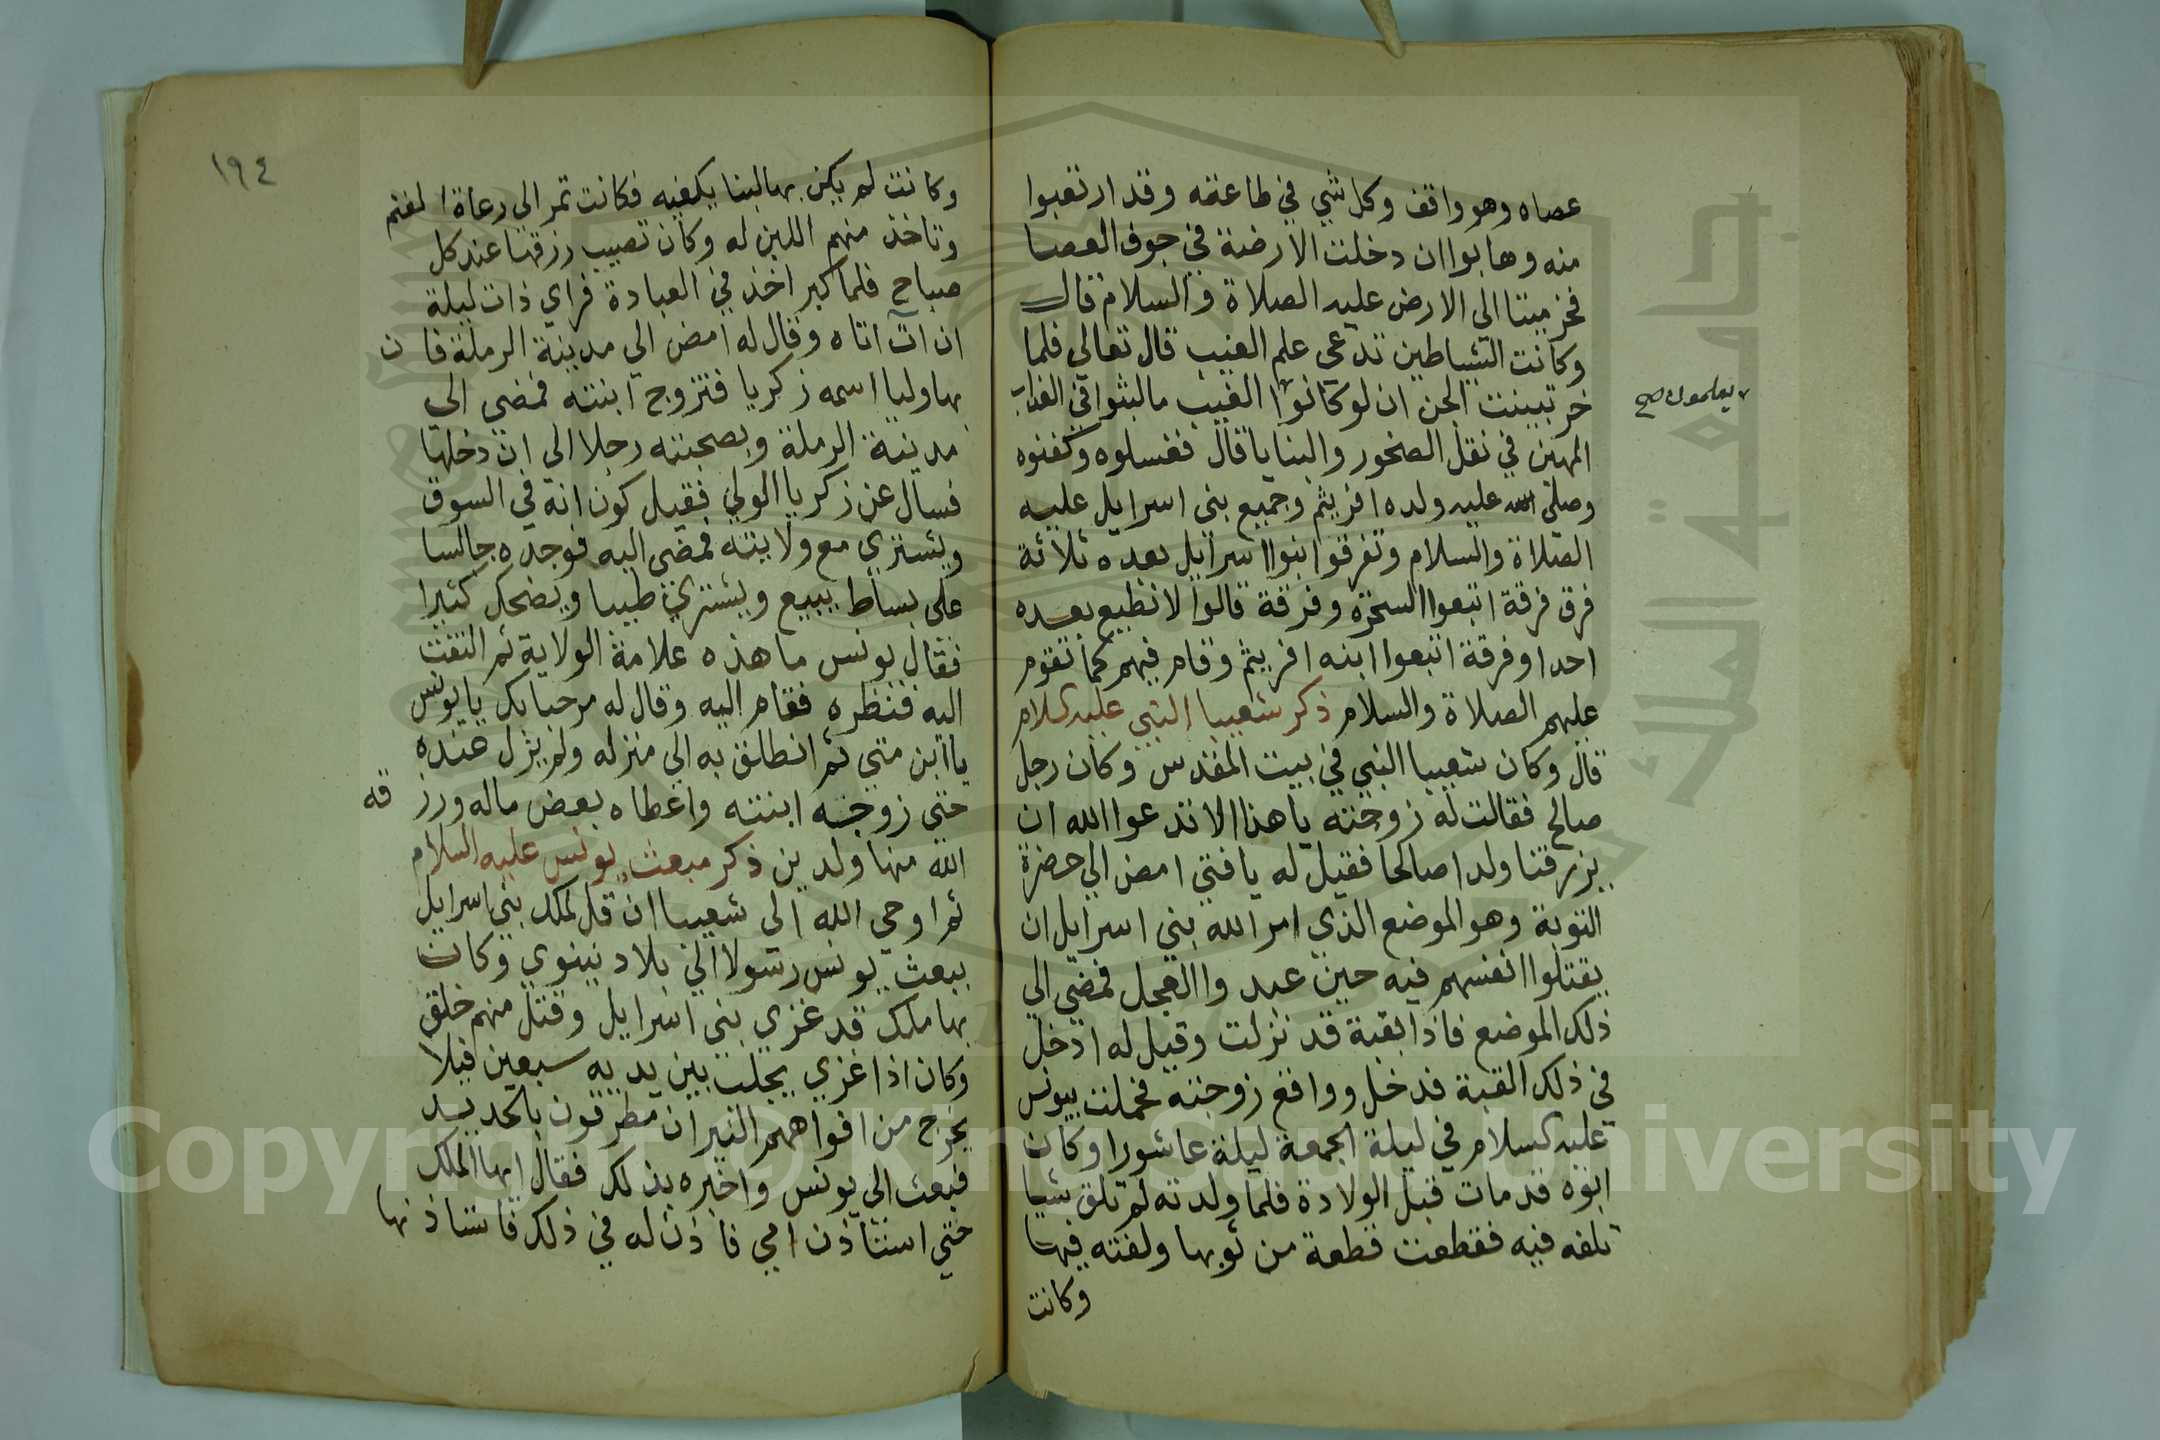 عصاه وهو واقف وكل شي في طاعته وقد ارتعبوا
منه وهابوا ان دخلت الارضة في جوف العصا
فخر ميتا الي الارض عليه الصلاة والسلام قال
وكانت الشياطين تدعي علم الغيب قال تعالي فلما
خر تبينت الجن ان لو كانوا الغيب ما لبثوا في العذاب
يعلمون صح
المهين في نقل الصخور والبنايا قال فغسلوه وكفنوه
وصلي الله عليه ولده افريثم وجميع بني اسرايل عليه
الصلاة والسلام وتفرقوا بنوا اسرايل بعده ثلاثة
فرق فرقة اتبعوا السخرة وفرقة قالوا لا نطيع بعده
احدا وفرقة اتبعوا ابنه افريثم وقام فيهم كما تقوم
عليهم الصلاة والسلام ذكر شعيبا النبي عليه السلام
قال وكان شعيبا النبي في بيت المقدس وكان رجل
صالح فقالت له زوجته يا هذا الا تدعوا الله ان
يزرقنا ولدا صالحا فقيل له يا فتي امض الي حضرة
التوبة وهو الموضع الذي امر الله بني اسرايل ان
يقتلوا انفسهم فيه حين عبدوا العجل فمضي الي
ذلك الموضع فاذا بقبة قد نزلت وقيل له ادخل
في ذلك القبة فدخل وواقع زوجته فحملت بيونس
عليه السلام في ليلة الجمعة ليلة عاشورا وكان
ابوه قد مات قبل الولادة فلما ولدته لم تلق شيا
تلفه فيه فقطعت قطعة من ثوبها ولفته فيها
وكانت
١٩٤
وكانت لم يكن بها لبنا يكفيه فكانت تمر الي رعاة الغنم
وتاخذ منهم اللبن له وكان تصيب رزقها عند كل
صباح فلما كبر اخذ في العبادة فراي ذات ليلة
ان ات اتاه وقال له امض الي مدينة الرملة فان
بها وليا اسمه زكريا فتزوج ابنته فمضي الي
مدينة الرملة وبصحبته رجلا الي ان دخلها
فسال عن زكريا الولي فقيل كون انه في السوق
ويشتري مع ولايته فمضي اليه فوجده جالسا
علي بساط يبيع ويشتري طيبا ويضحك كثيرا
فقال يونس ما هذه علامة الولاية ثم التفت
اليه فنظره فقام اليه وقال له مرحبا بك يا يونس
يا ابن متي ثم انطلق به الي منزله ولم يزل عنده
حتي زوجه ابنته واعطاه بعض ماله ورزقه
الله منها ولدين ذكر مبعث يونس عليه السلام
ثم اوحي الله الي شعيبا ان قل لملك بني اسرايل
يبعث يونس رسولا الي بلاد نينوي وكان
بها ملك قد غزي بني اسرايل وقتل منهم خلق
وكان اذا غزي يجلب بين يديه سبعين فيلا
يخرج من افواههم النيران مطرقون بالحديد
فبعث الي يونس واخبره بذلك فقال ايها الملك
حتي استأذن امي فاذن له في ذلك فاستاذنها
Copyright © King Saud University
جامعة الملك سعود